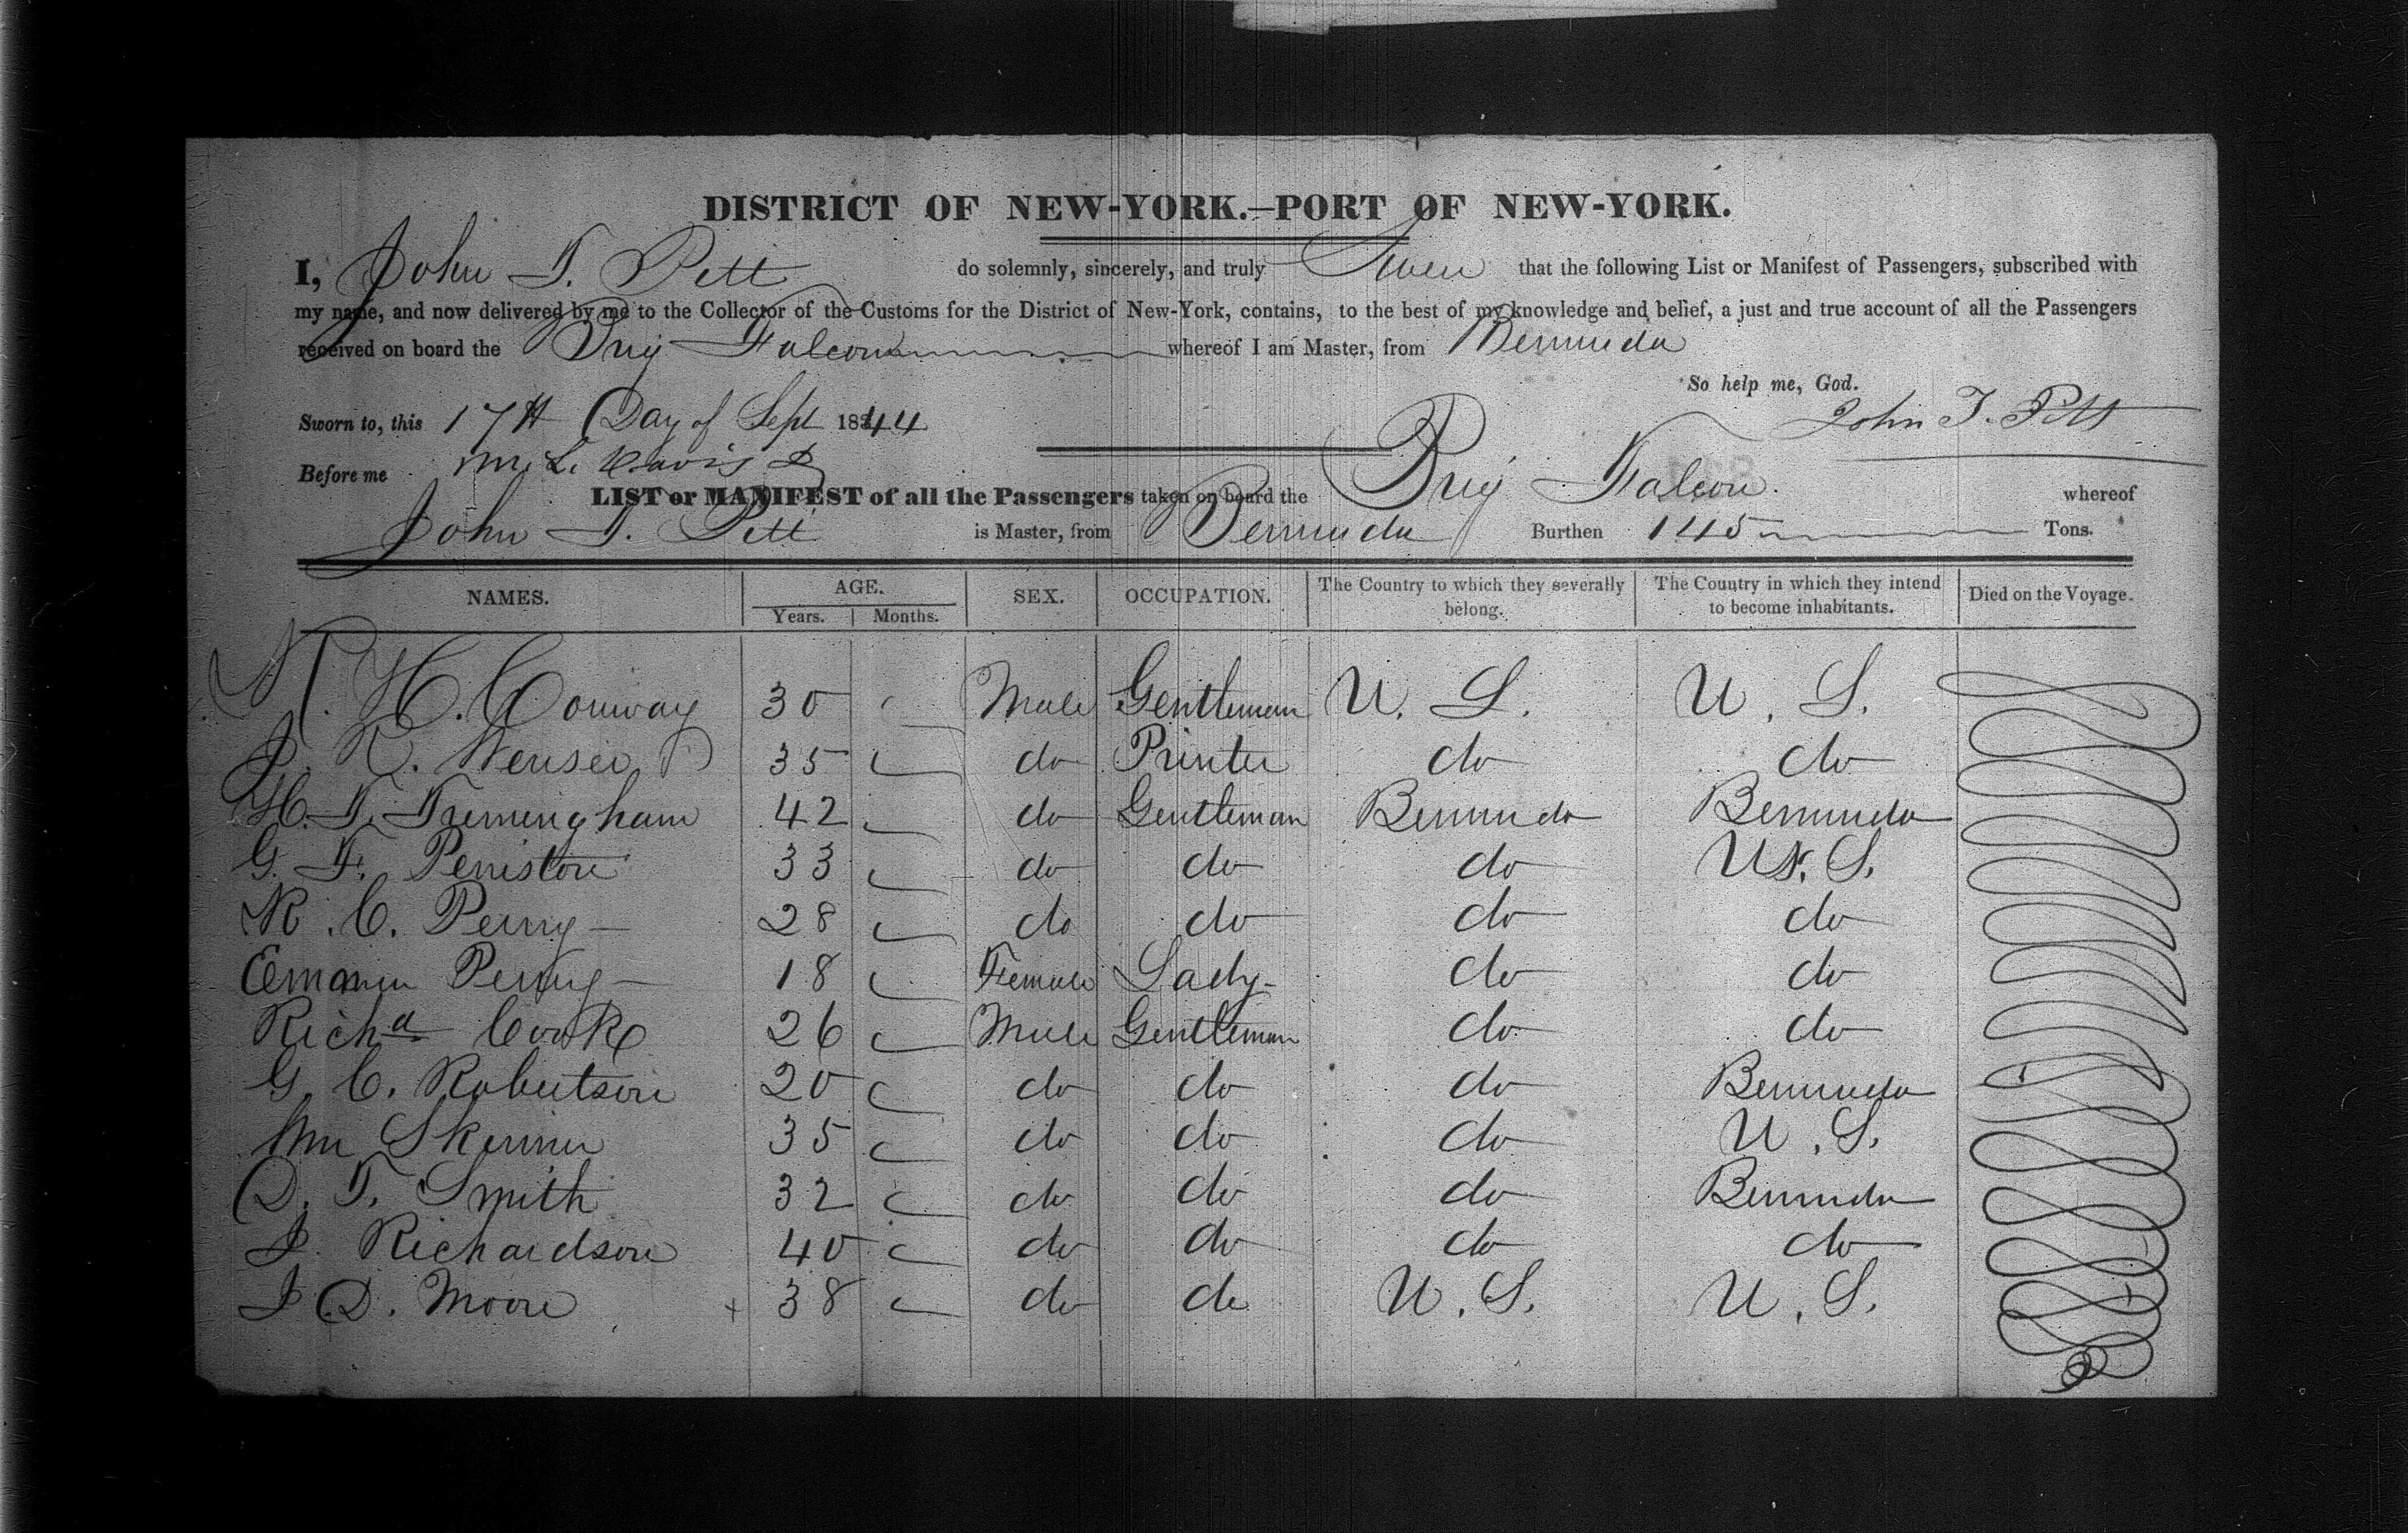 DISTRICT OF NEW-YORK.—PORT OF NEW-YORK.
I, John T. Pitt do solemnly, sincerely, and truly Swear that the following List or Manifest of Passengers, subscribed with
my name, and now delivered by me to the Collector of the Customs for the District of New-York, contains, to the best of my knowledge and belief, a just and true account of all the Passengers
received on board the Brig Falcon whereof I am Master, from Bermuda
So help me, God.
Sworn to, this 17th Day of Sept 1844 John T. Pitt
Before me M. L. Davis
LIST or MANIFEST of all the Passengers taken on board the Brig Falcon whereof
John T. Pitt is Master, from Bermuda Burthen 145 Tons.
NAMES. AGE. Years. Months. SEX. OCCUPATION. The Country to which they severally belong. The Country in which they intend to become inhabitants. Died on the Voyage.
N. H. Conway 30 Male Gentleman U. S. U. S.
J. R. 35 do Printer do do
H. T. Trimingham 42 do Gentleman Bermuda Bermuda
G. F. Peniston 33 do do do U. S.
R. C. Perry 28 do do do do
Perry 18 Female Lady do do
Richd Cook 26 Male Gentleman do do
G. C. Robertson 20 do do do Bermuda
Wm Skinner 35 do do do U. S.
D. T. Smith 32 do do do Bermuda
J. Richardson 40 do do do do
J D. Moore + 38 do do U. S. U. S.